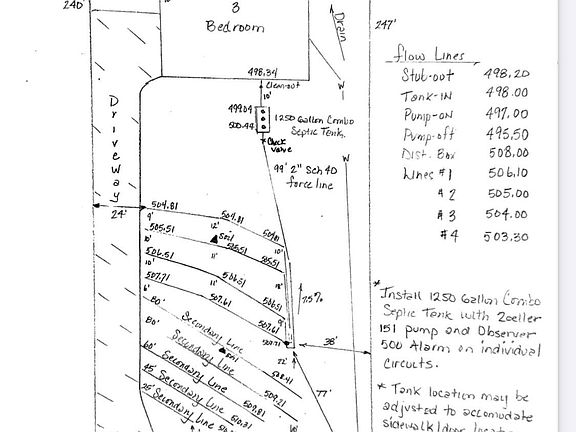 240'
3
Bedroom
Drain
247'
498.34
Clean-out
10'
W
499.04
500.44
1250 Gallon Combo
Septic Tank.
Check
valve
99' 2" Sch 40
force line
W
Driveway
24'
flow Lines
Stub-out 498.20
Tank-IN 498.00
Pump-on 497.00
Pump-off 495.50
Dist. Box 508.00
Lines #1 506.10
#2 505.00
#3 504.00
#4 503.30
504.81
504.81
504.81
9'
12'
505.51
Soil
505.51
505.51
10'
10'
506.51
11'
506.51
506.51
10'
507.71
11'
507.61
507.61
9'
6'
507.71
25%
38'
22'
77'
80' Secondary Line
508.41
80' Secondary Line
509.21
60' Secondary Line
509.81
45' Secondary Line
25' Secondary Line
* Install 1250 Gallon Combo
Septic Tank with Zoeller
151 pump and Observer
500 Alarm on individual
circuits.
* Tank location may be
adjusted to accomodate